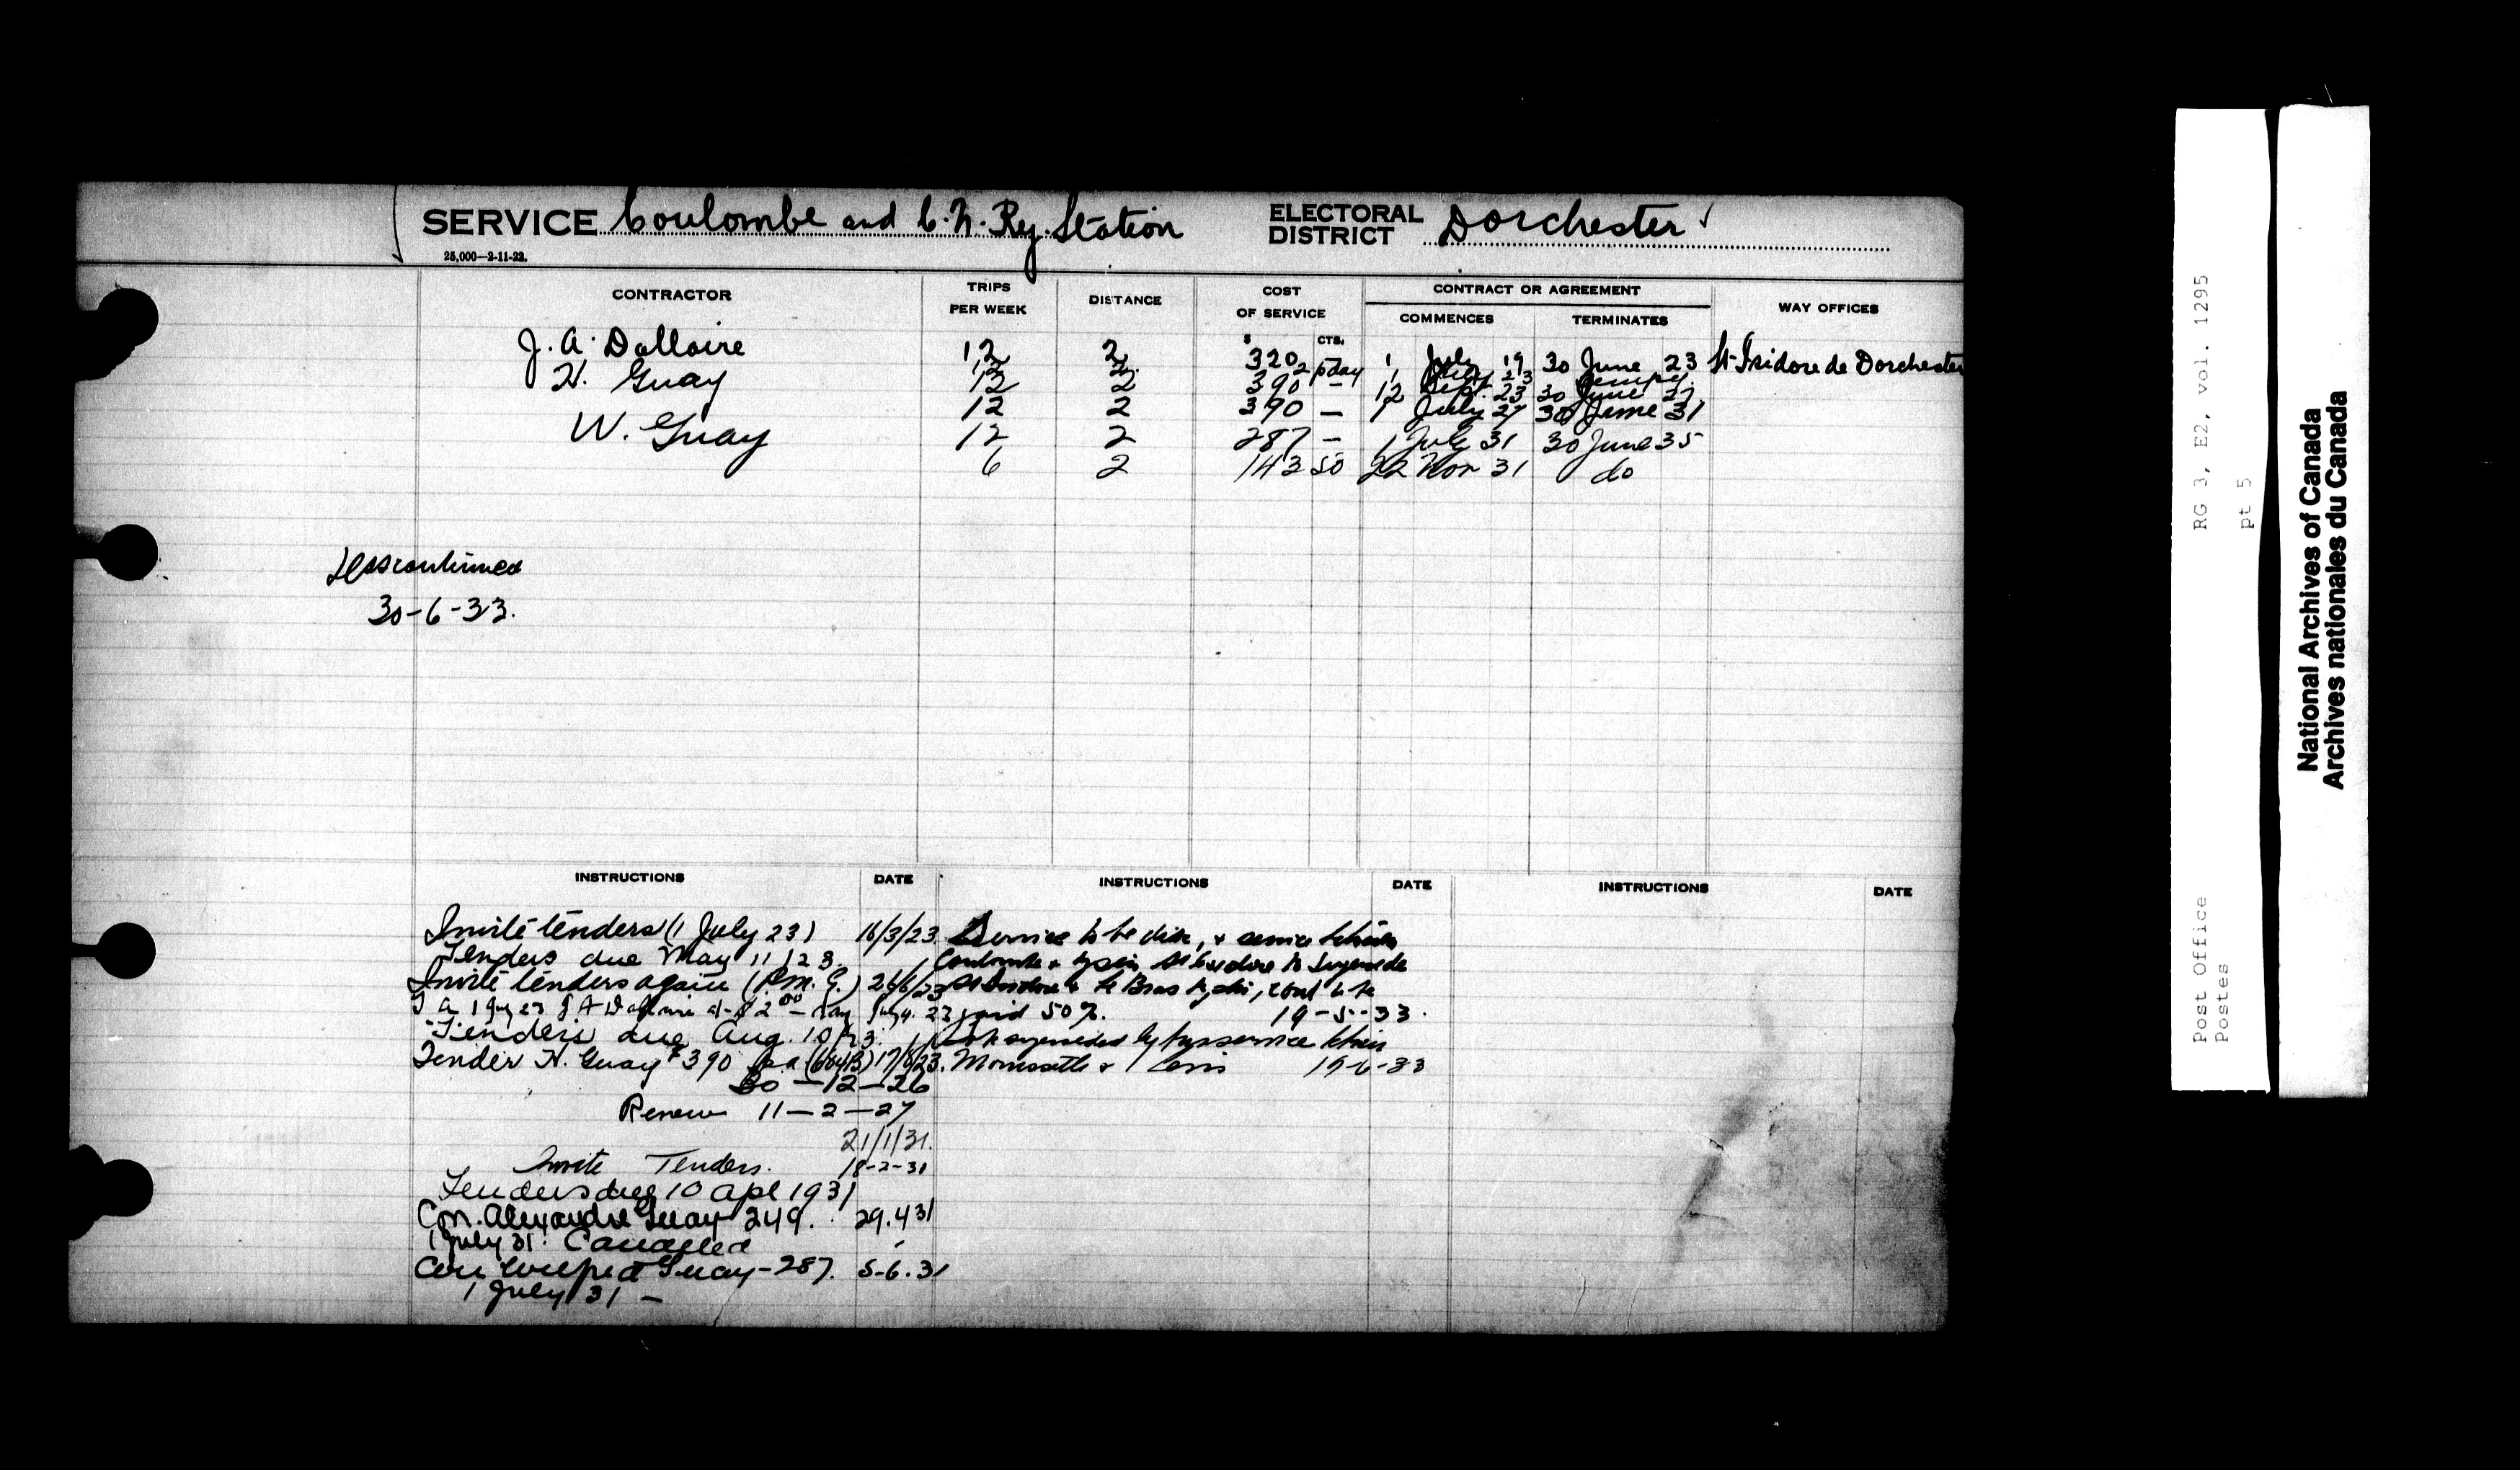 SERVICE Coulombe and C. N. Ry. Station ELECTORAL DISTRICT Dorchester
25,000—2-11-22.
CONTRACTOR TRIPS PER WEEK DISTANCE COST OF SERVICE CONTRACT OR AGREEMENT WAY OFFICES
COMMENCES TERMINATES
$ CTS.
J. A. Dallaire 12 2 320 1 July 19 30 June 23 St Isidore de Dorchester
12 2 2 p day 1 July 23 Tempy.
H. Guay 12 2 390 — 12 Sept. 23 30 June 27
12 2 390 — 1 July 27 30 June 31
W. Guay 12 2 287 — 1 July 31 30 June 35
6 2 143 50 22 Nov 31 do
Discontinued
30-6-33.
INSTRUCTIONS DATE INSTRUCTIONS DATE INSTRUCTIONS DATE
Invite tenders (1 July 23) 16/3/23
Tenders due May 11/23.
Invite tenders again (P.M.G.) 26/6/23
T A 1 July 23 J. A Dallaire at $2 00 — day July 4. 23
Tenders due Aug. 10/23.
Tender H. Guay $390 p.a 17/8/23.
30—12—26
Renew 11—2—27
21/1/31.
Invite Tenders. 18-2-31
Tenders due 10 Apl 1931
Con. Alexandre Guay 249. 29.4 31
1 July 31. Cancelled
Con Guay—287. 5-6.31
1 July 31 —
Service to be disc, & service
Coulombe &
St Isidore &
paid 50%. 19-5-33.
superseded by service
Morissette & Levis 19-6-33
RG 3, E2, vol. 1295
pt 5
Post Office
Postes
National Archives of Canada
Archives nationales du Canada